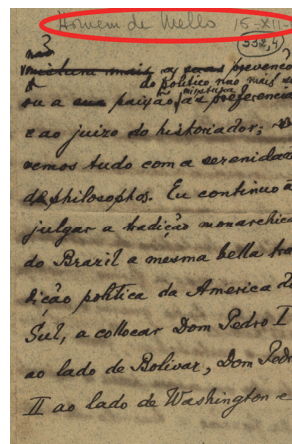 Homem de Mello 15-XII-
(332,4)
não
mistura mais as suas prevenco
do politico, não mais se
mistura
ou a sua paixão, ás preferencia
e ao juizo do historiador;
vemos tudo com a serenidad
de philosophos. Eu continúo a
julgar a tradição monarchica
do Brazil a mesma bella tra
dição politica da America d
Sul, a collocar Dom Pedro I
ao lado de Bolivar, Dom Pedr
II ao lado de Washington e